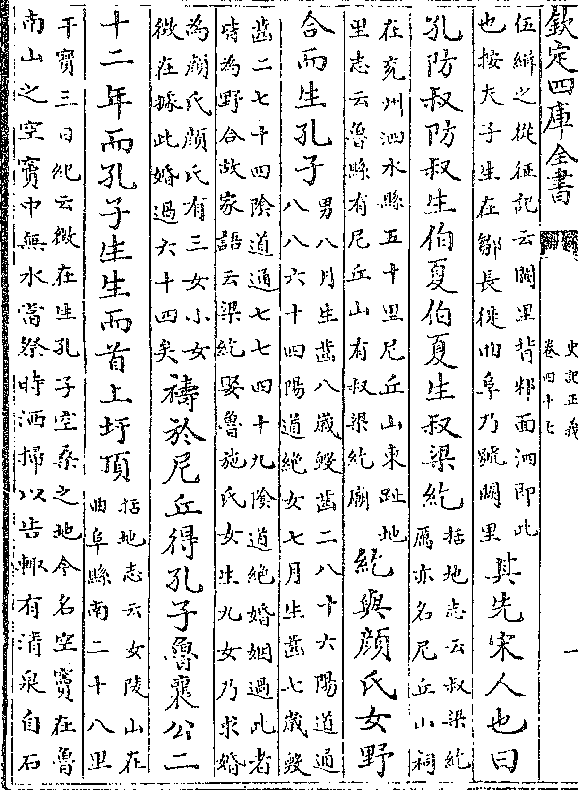 欽定四庫全書
史記正義
卷四十七
一
伍緝之從征記云闕里背邾面泗即此
也按夫子生在鄒長徙曲阜乃號闕里
其先宋人也曰
孔防叔防叔生伯夏伯夏生叔梁紇
括地志云叔梁紇
廟亦名尼丘山祠
在兖州泗水縣五十里尼丘山東趾地
里志云魯縣有尼丘山有叔梁紇廟
紇與顔氏女野
合而生孔子
男八月生齒八歲毁齒二八十六陽道通
八八六十四陽道絶女七月生齒七歲毁
齒二七十四陰道通七七四十九陰道絶婚姻過此者
皆為野合故家語云梁紇娶魯施氏女生九女乃求婚
為顔氏顔氏有三女小女
徴在據此婚過六十四矣
禱於尼丘得孔子魯襄公二
十二年而孔子生生而首上圩頂
括地志云女陵山在
曲阜縣南二十八里
干寳三日紀云徴在生孔子空桑之地今名空竇在魯
南山之空竇中無水當祭時洒掃以告輒有清泉自石